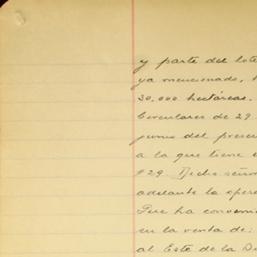 y parte del lote
ya mencionado,
30.000 hectáreas.
Circulares de 29
junio del presen
a la que tiene
#29. Dicho seño
adelante la oper
Que ha conveni
en la venta de:
al Este de la D